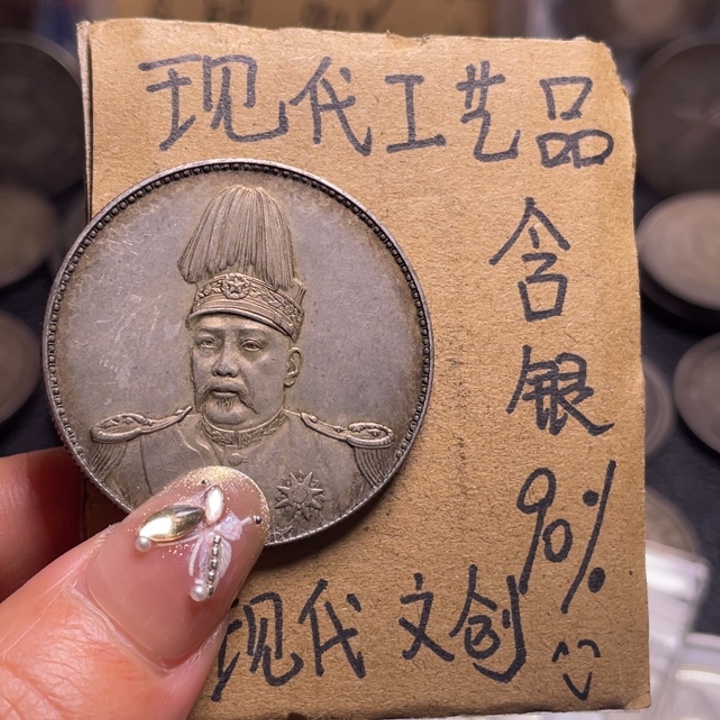 现代工艺品
含
银
90%
现代文创